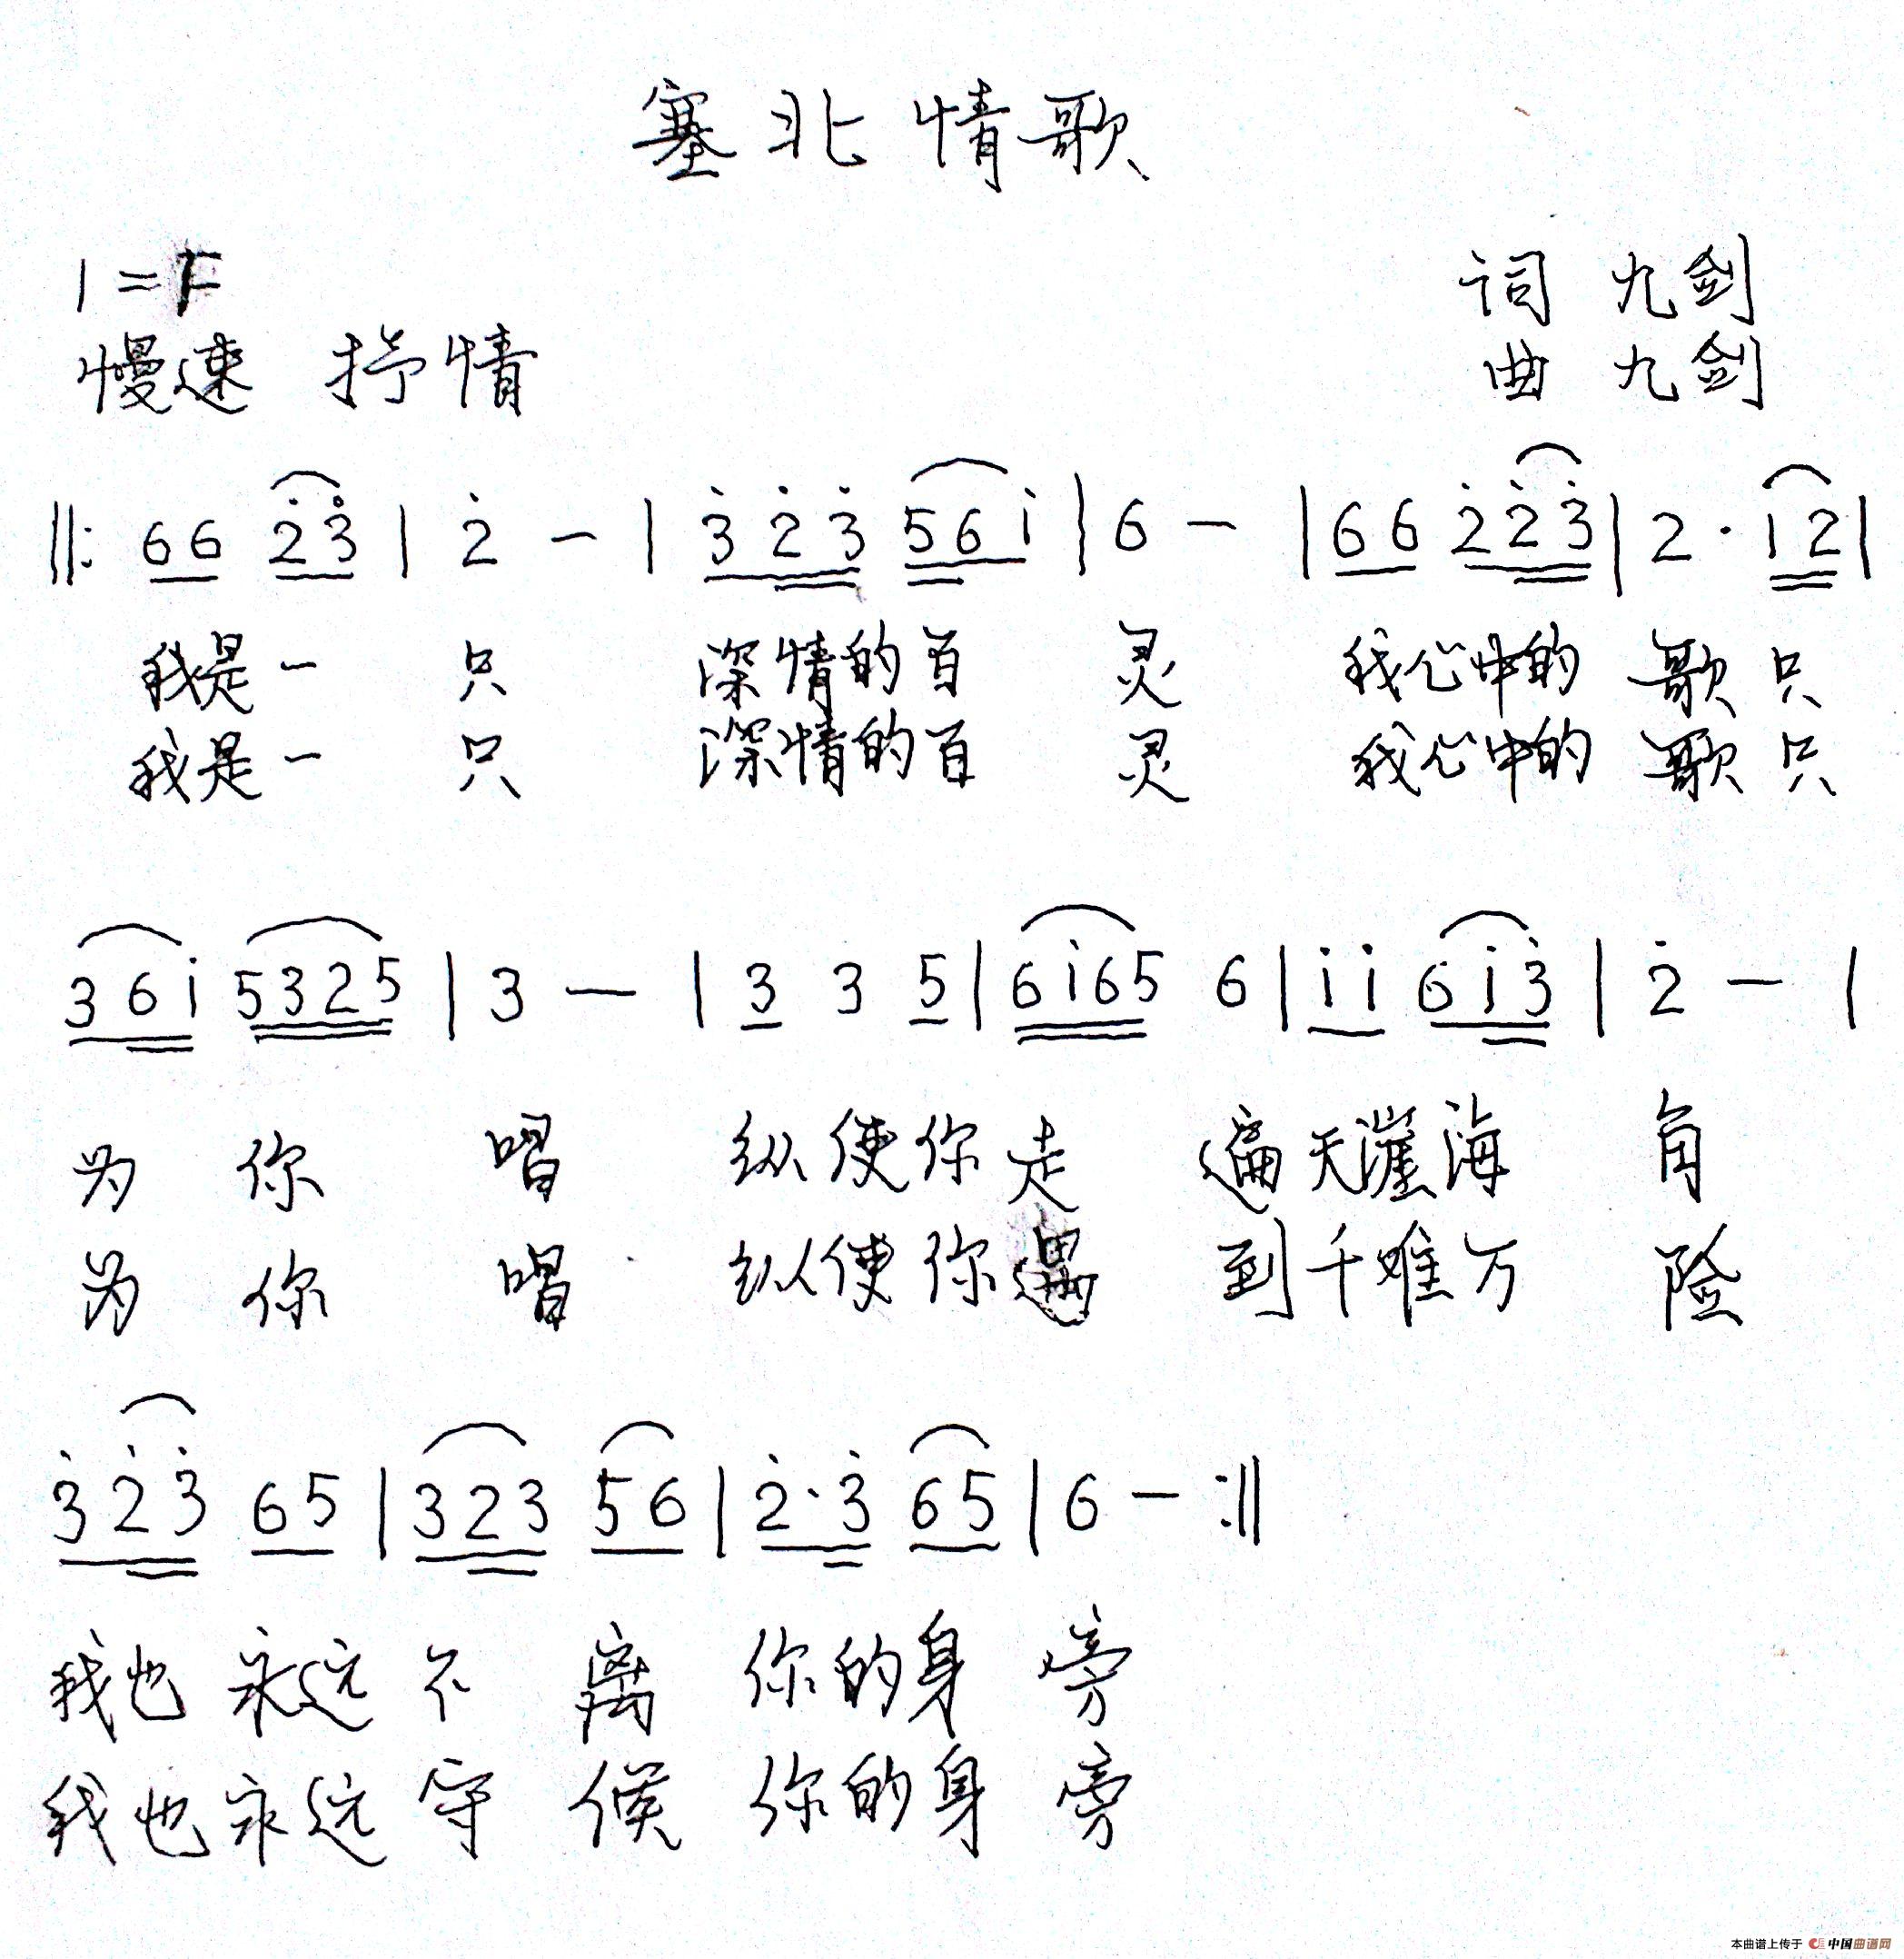 塞北情歌
1=F 词 九剑
慢速 抒情 曲 九剑
‖: 66 2̇3̇ | 2̇ - | 3̇2̇3̇ 561̇ | 6 - | 66 2̇2̇3̇ | 2·1̇2 |
我是一 只 深情的百 灵 我心中的 歌只
我是一 只 深情的百 灵 我心中的 歌只
361̇ 5325 | 3 — | 3 3 5 | 61̇65 6 | 1̇1̇ 61̇3̇ | 2̇ — |
为 你 唱 纵使你走 遍天漄海 角
为 你 唱 纵使你遇 到千难万 险
3̇2̇3̇ 65 | 323 56 | 2̇·3̇ 65 | 6 — :‖
我也 永远 不 离 你的身 旁
我也永远 守 候 你的身 旁
本曲谱上传于 中国曲谱网